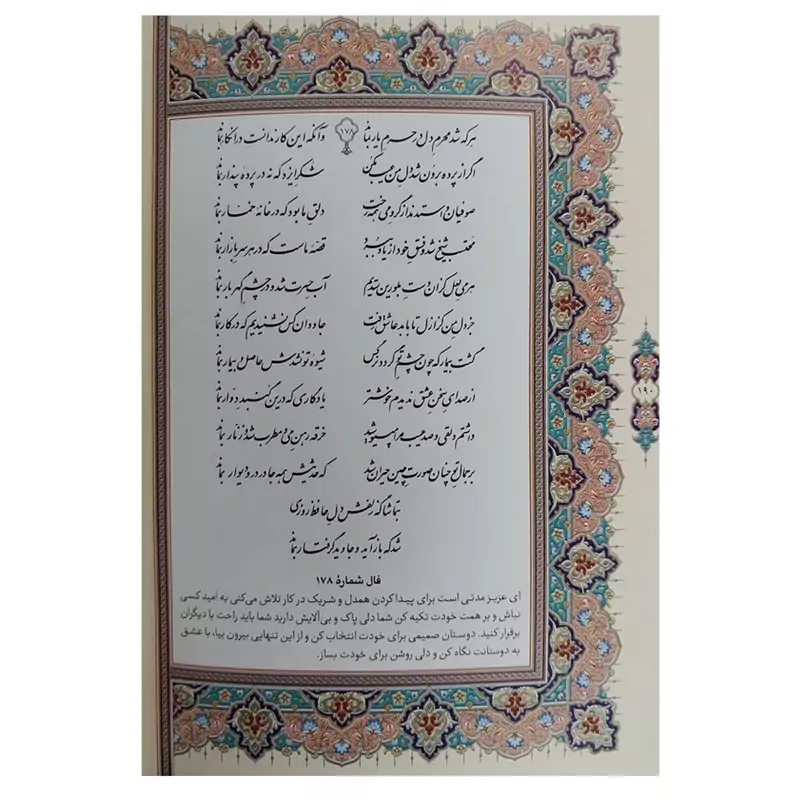 ۱۷۸
هر که شد محرم دل در حرم یار بماند وآنکه این کار ندانست در انکار بماند
اگر از پرده برون شد دل من عیب مکن شکر ایزد که نه در پرده پندار بماند
صوفیان واستدند از گرو می همه رخت دلق ما بود که در خانه خمار بماند
محتسب شیخ شد و فسق خود از یاد ببرد قصه ماست که در هر سر بازار بماند
هر می لعل کزان دست بلورین ستدیم آب حسرت شد و در چشم گهربار بماند
جز دل من کز ازل تا به ابد عاشق رفت جاودان کس نشنیدیم که در کار بماند
گشت بیمار که چون چشم تو گردد نرگس شیوه تو نشدش حاصل و بیمار بماند
از صدای سخن عشق ندیدم خوشتر یادگاری که درین گنبد دوار بماند
داشتم دلقی و صد عیب مرا می‌پوشید خرقه رهن می و مطرب شد و زنار بماند
بر جمال تو چنان صورت چین حیران شد که حدیثش همه جا در در و دیوار بماند
بتماشاگه زلفش دل حافظ روزی
شد که باز آید و جاوید گرفتار بماند
فال شمارهٔ ۱۷۸
ای عزیز مدتی است برای پیدا کردن همدل و شریک در کار تلاش می‌کنی به امید کسی
نباش و بر همت خودت تکیه کن شما دلی پاک و بی‌آلایش دارید شما باید راحت با دیگران
برقرار کنید. دوستان صمیمی برای خودت انتخاب کن و از این تنهایی بیرون بیا، با عشق
به دوستانت نگاه کن و دلی روشن برای خودت بساز.
۱۹۰